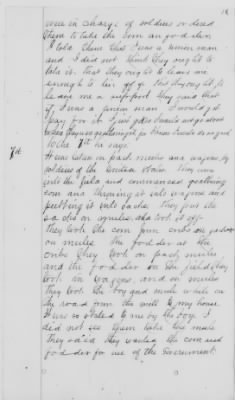 were in charge of soldiers ordered
them to take the corn and fodder
I told them that I was a union man
and I did not think they ought to
take it. that they ought to leave me
enough to live off of
leave me a support. They said that
if I was a union man I would get
pay for it
To the 7th he says
7th
It was taken in part mules and wagons, by
soldiers of the United States. They came
into the field and commenced gathering
corn and throwing it into wagons and
putting it into sacks. They put the
sacks on mules and took it off
they took the corn from cribs and
on mules. the fodder at the
cribs they took on pack mules
and the fodder in the field they
took in wagons, and on mules
they took the boy and mule while on
the road from the mill to my house
It was so stated to me by the boy. I
did not see them take the mule
They said they wanted the corn and
fodder for use of the Government